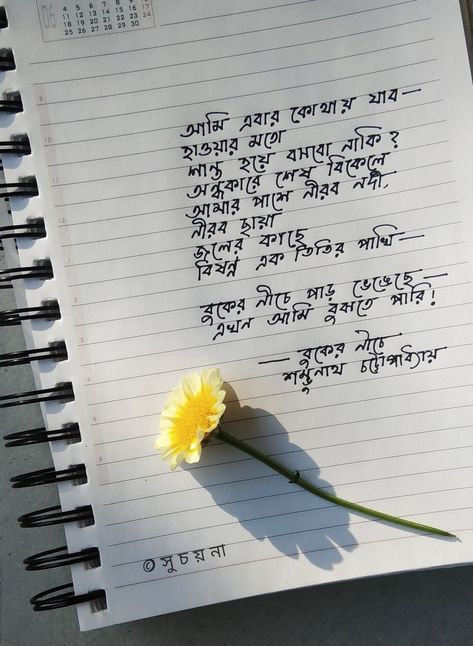 06
4 5 6 7 8 9 10
11 12 13 14 15 16 17
18 19 20 21 22 23 24
25 26 27 28 29 30
আমি এবার কোথায় যাব—
হাওয়ার মতো
শান্ত হয়ে বসবো নাকি?
অন্ধকারে শেষ বিকেলে
আমার পাশে নীরব নদী,
নীরব ছায়া
জলের কাছে
বিষণ্ণ এক তিতির পাখি—
বুকের নীচে পাড় ভেঙেছে—
এখন আমি বুঝতে পারি!
— বুকের নীচে
শম্ভুনাথ চট্টোপাধ্যায়
© সুচয়না